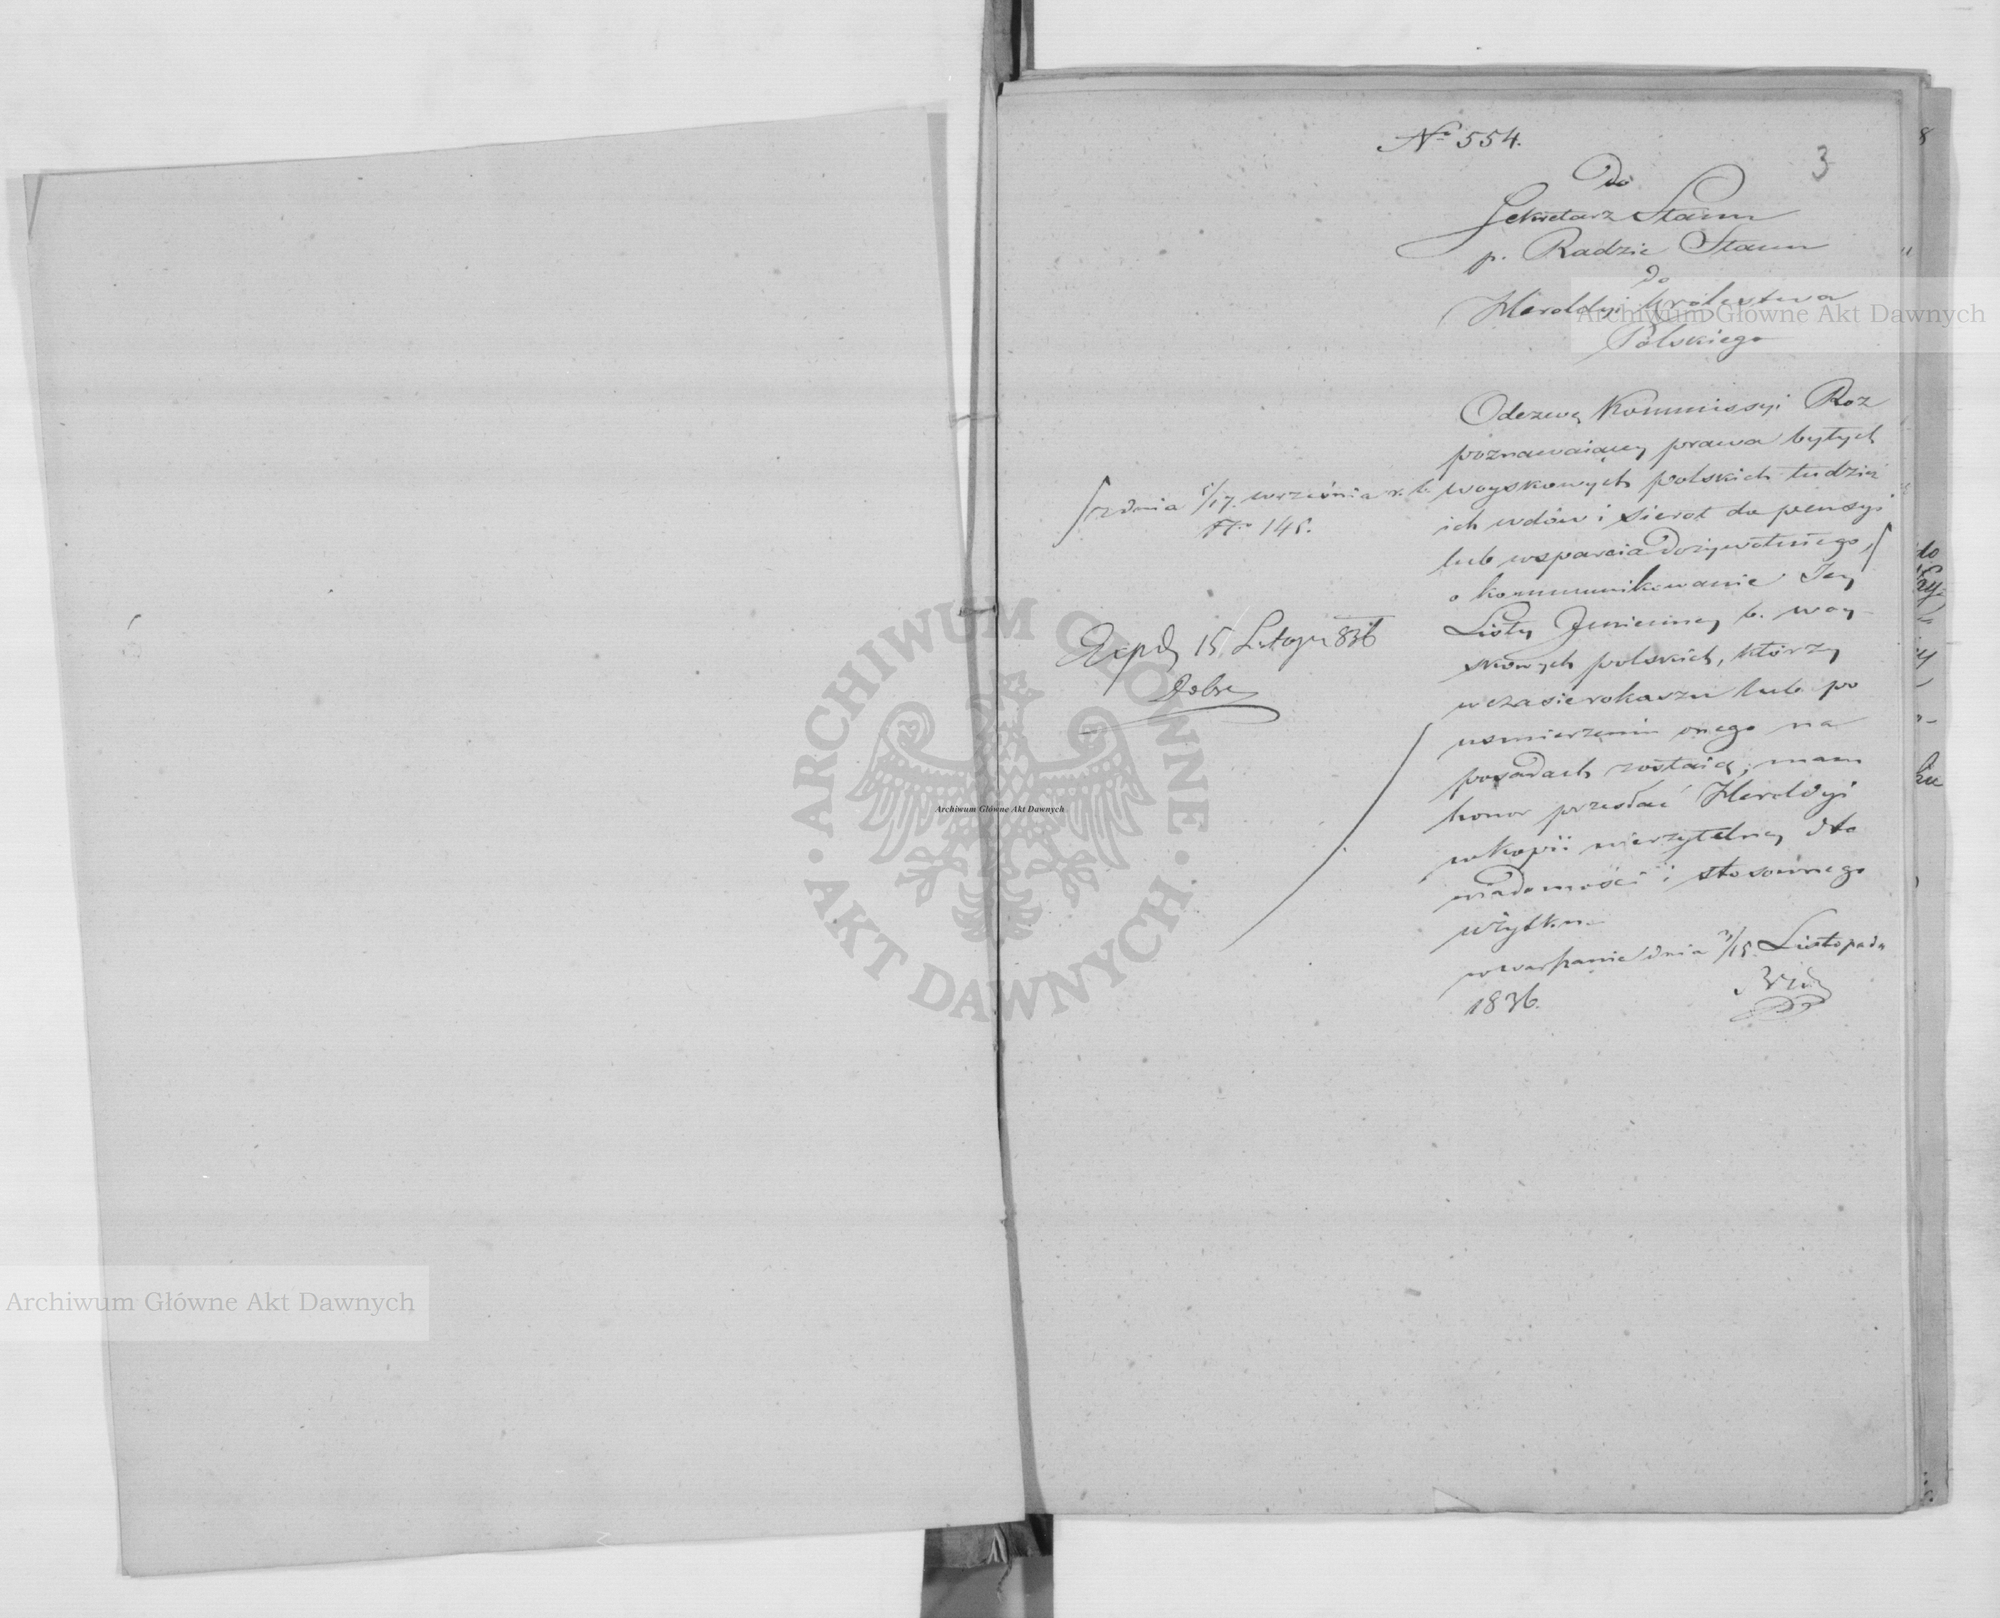 Nº 554.
3
Do
Sekretarz Stanu
p. Radzie Stanu
do
Heroldyi Królestwa
Polskiego
Odezwę Kommissyi Roz
poznawaiącey prawa byłych
woyskowych polskich tudzież
ich wdów i sierot do pensyi
lub wsparcia dożywotniego,
z dnia 5/17 września r. b.
No 145.
o kommunikowanie Jey
Listy Jmienney b. woy-
skowych polskich, którzy
w czasie rokoszu lub po
usmierzeniu onego na
posadach zostaią, mam
honor przesłać Heroldyi
w kopii wierzytelney dla
wiadomości i stosownego
użytku
w Warszawie dnia 3/15 Listopada
1836.
Exped 15 Listopa 836
Archiwum Główne Akt Dawnych
Archiwum Główne Akt Dawnych
Archiwum Główne Akt Dawnych
ARCHIWUM GŁÓWNE
AKT DAWNYCH